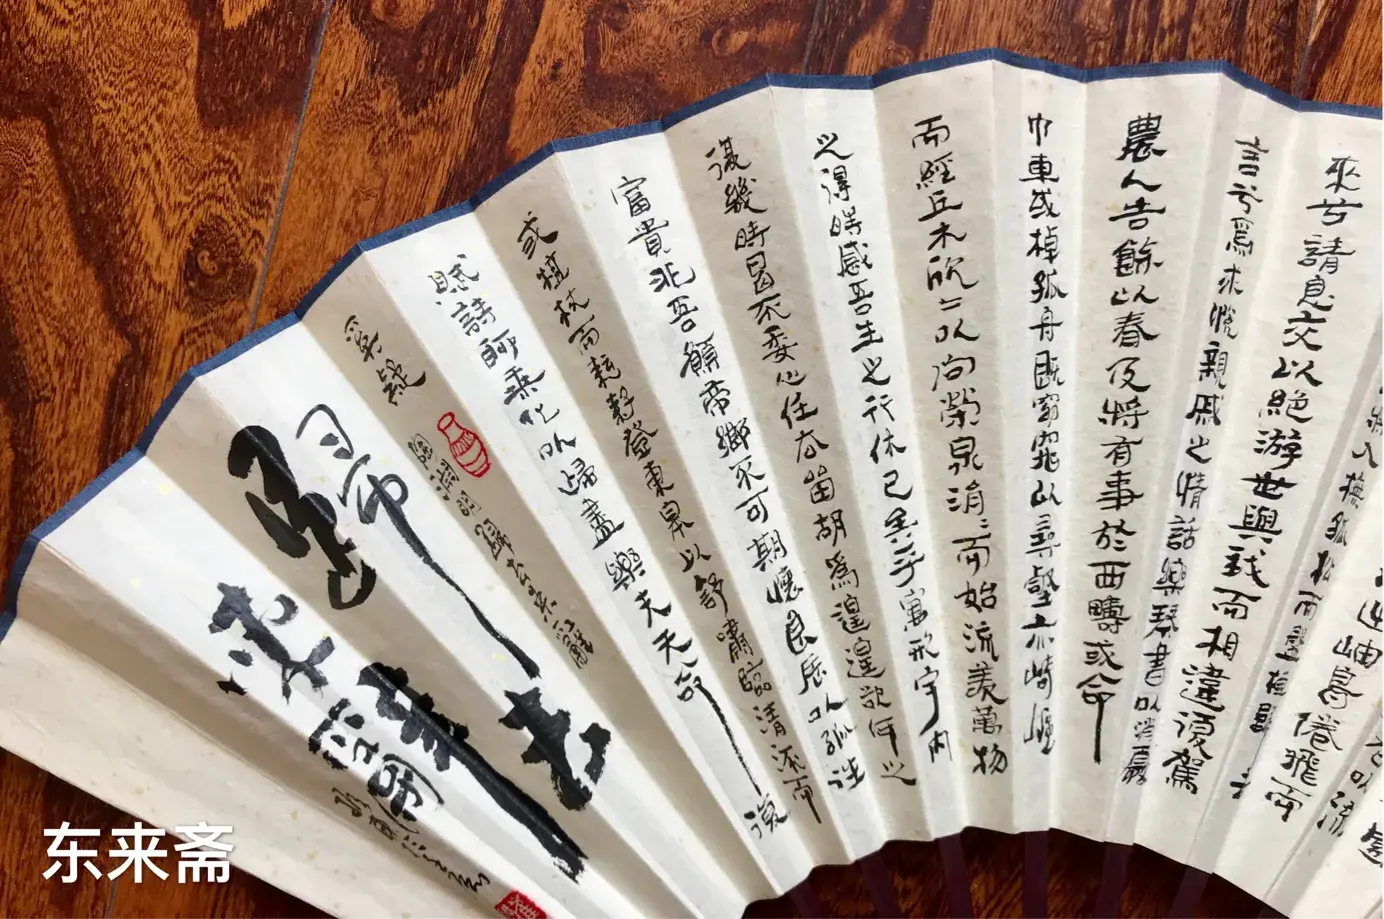 來兮請息交以絕游世與我而相違復駕
言兮焉求悅親戚之情話樂琴書以消憂
農人告餘以春及將有事於西疇或命
巾車或棹孤舟既窈窕以尋壑亦崎嶇
而經丘木欣二以向榮泉涓二而始流羨萬物
之得時感吾生之行休已矣乎寓形宇內
復幾時曷不委心任去留胡為遑遑欲何之
富貴非吾願帝鄉不可期懷良辰以孤往
或植杖而耘耔登東皋以舒嘯臨清流而
賦詩聊乘化以歸盡樂夫天命復
奚疑
陶淵明歸去來辭
歸去
來
东来斋